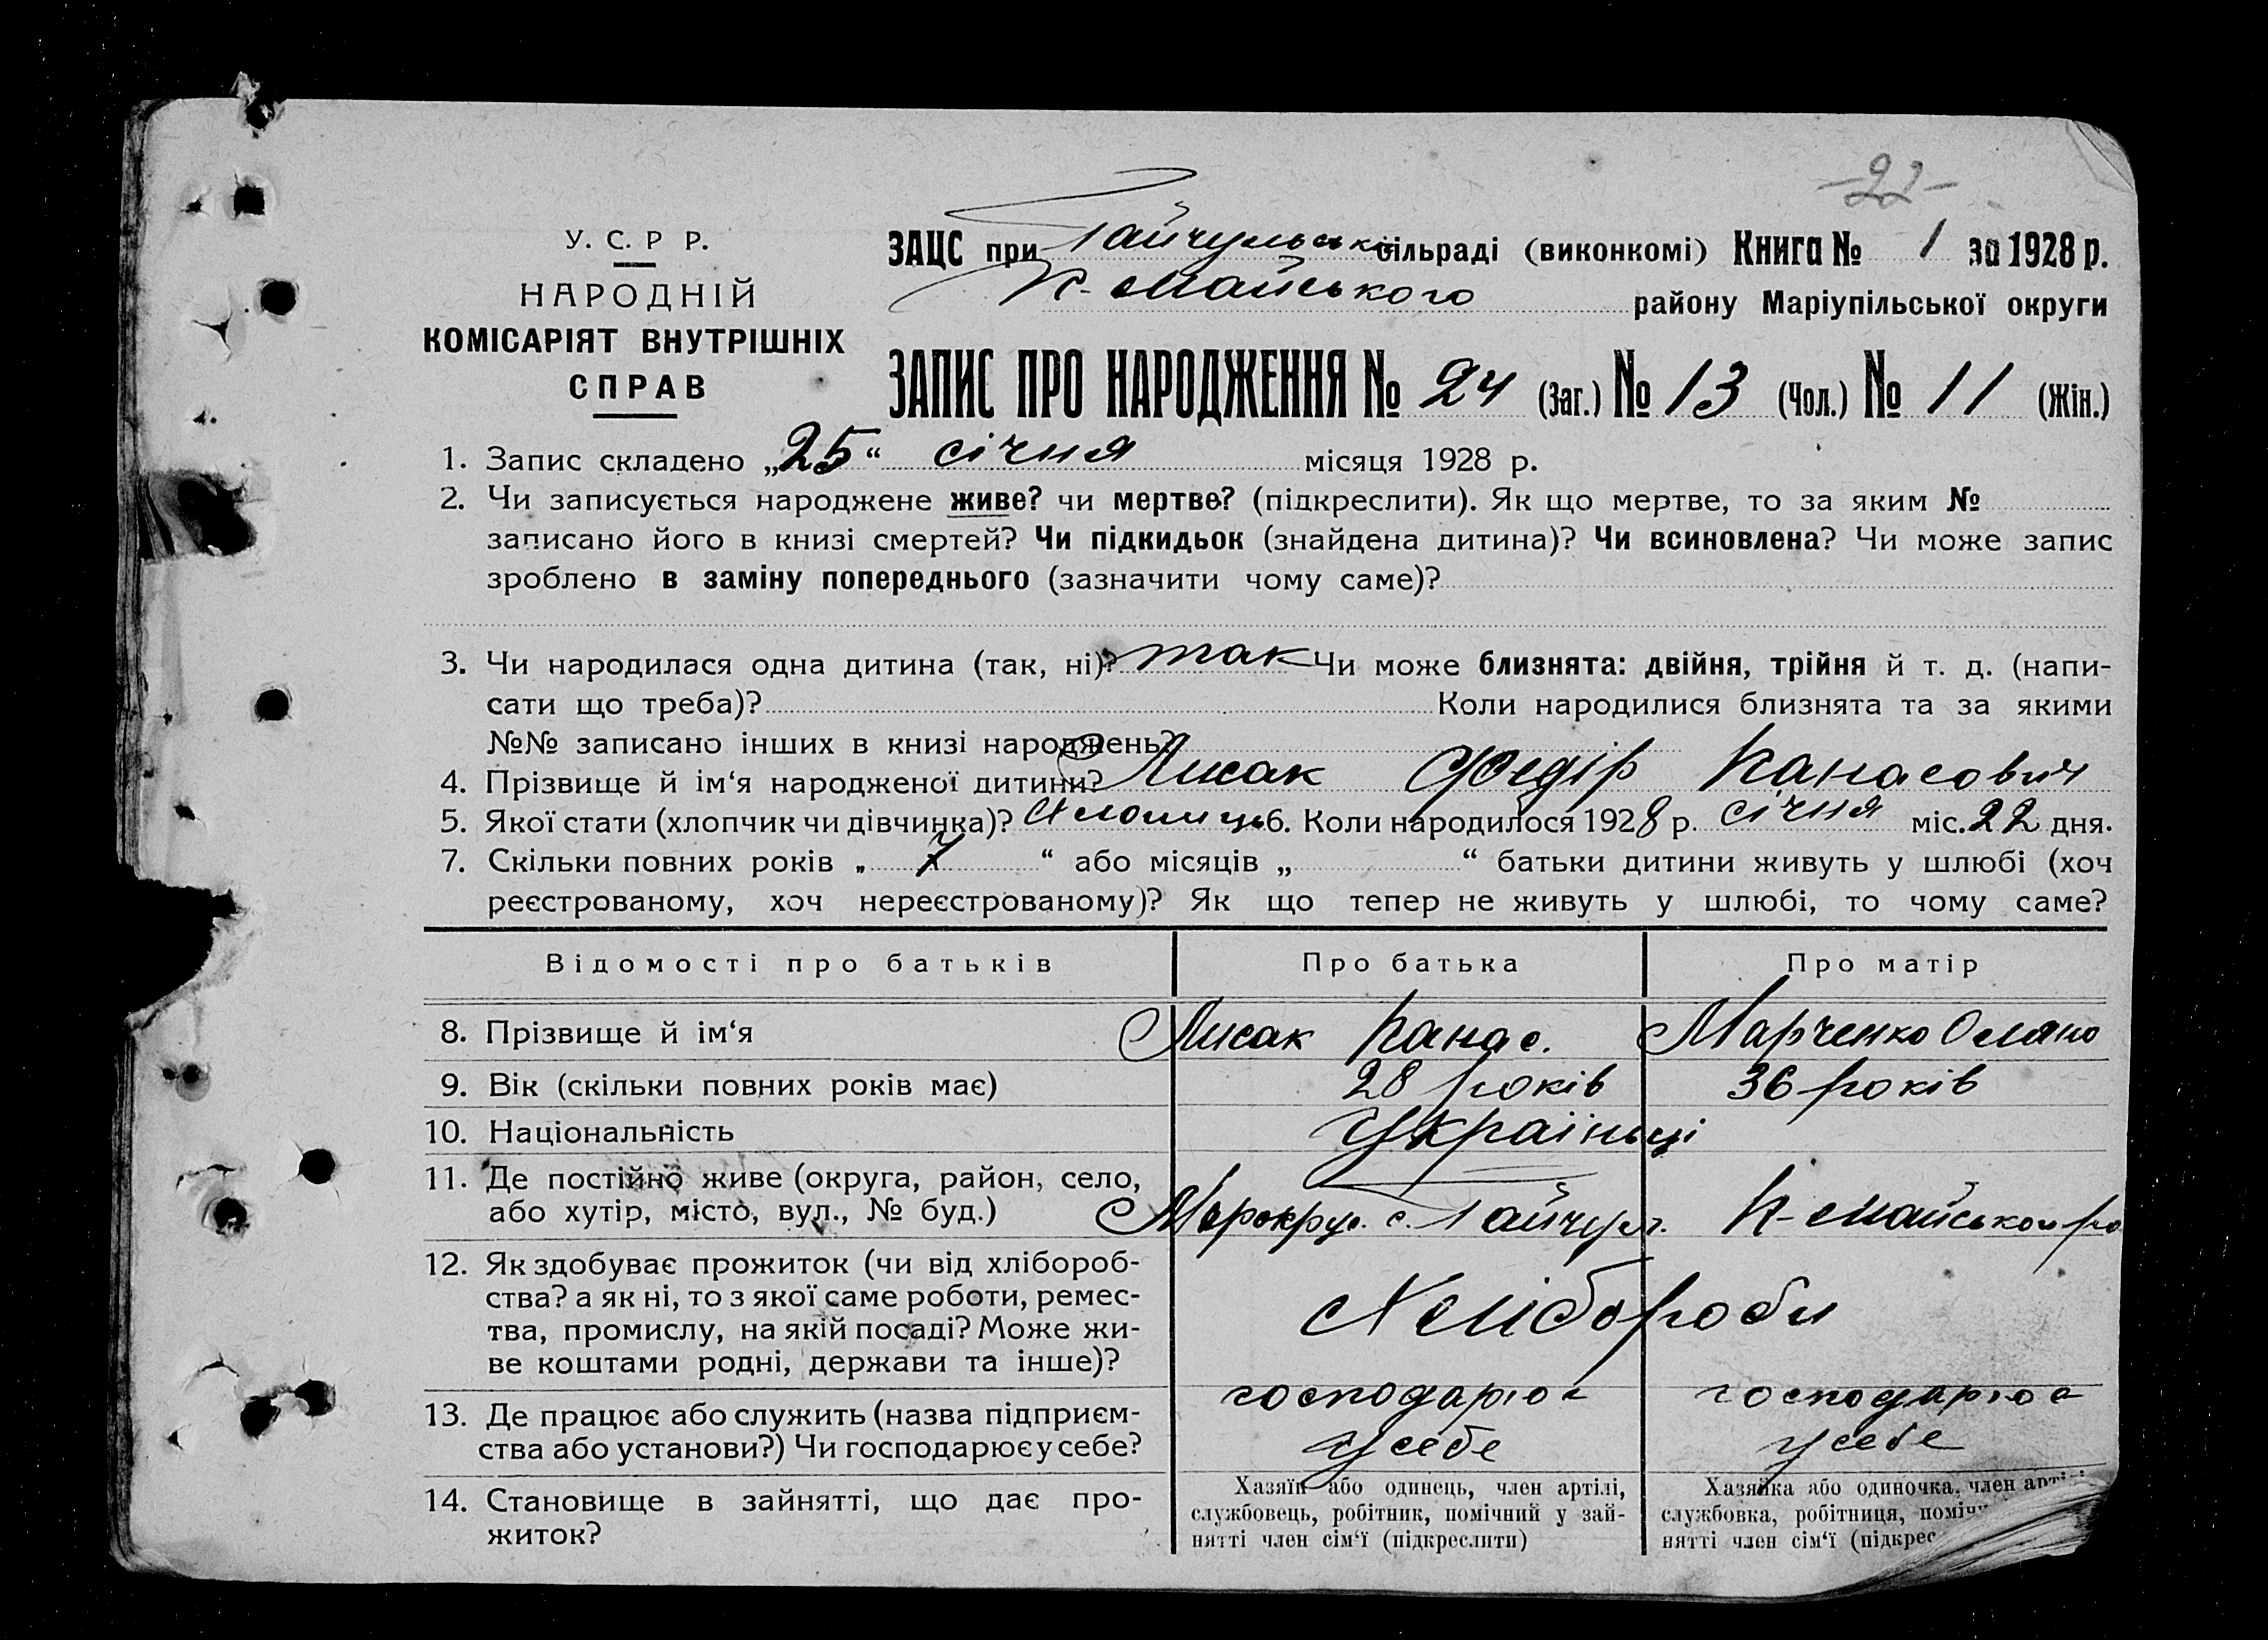 -22-
У. С. Р Р.
НАРОДНІЙ
КОМІСАРІЯТ ВНУТРІШНІХ
СПРАВ
ЗАЦС при Гайчульській сільраді (виконкомі) Книга № 1 за 1928 р.
К-Майського району Маріупільської округи
ЗАПИС ПРО НАРОДЖЕННЯ № 24 (Заг.) № 13 (Чол.) № 11 (Жін.)
1. Запис складено „25“ січня місяця 1928 р.
2. Чи записується народжене живе? чи мертве? (підкреслити). Як що мертве, то за яким №
записано його в книзі смертей? Чи підкидьок (знайдена дитина)? Чи всиновлена? Чи може запис
зроблено в заміну попереднього (зазначити чому саме)?
3. Чи народилася одна дитина (так, ні)? так Чи може близнята: двійня, трійня й т. д. (напи-
сати що треба)? Коли народилися близнята та за якими
№№ записано інших в книзі народжень?
4. Прізвище й ім‘я народженої дитини? Лисак Федір Панасович
5. Якої стати (хлопчик чи дівчинка)? Хлопець 6. Коли народилося 1928 р. січня міс. 22 дня.
7. Скільки повних років „ 7 “ або місяців „ “ батьки дитини живуть у шлюбі (хоч
реєстрованому, хоч нереєстрованому)? Як що тепер не живуть у шлюбі, то чому саме?
Відомості про батьків Про батька Про матір
8. Прізвище й ім‘я Лисак Панас. Марченко Оляна
9. Вік (скільки повних років має) 28 років 36 років
10. Національність Українці
11. Де постійно живе (округа, район, село,
або хутір, місто, вул., № буд.) с. Гайчул. К-Майського р
12. Як здобуває прожиток (чи від хлібороб-
ства? а як ні, то з якої саме роботи, ремес-
тва, промислу, на якій посаді? Може жи-
ве коштами родні, держави та інше)?
Хлібороби
13. Де працює або служить (назва підприєм-
ства або установи?) Чи господарює у себе?
господарює
у себе
господарює
у себе
14. Становище в зайнятті, що дає про-
житок?
Хазяїн або одинець, член артілі,
службовець, робітник, помічний у зай-
нятті член сім‘ї (підкреслити)
Хазяйка або одиночка, член арті
службовка, робітниця, поміч
нятті член сім‘ї (підкрес